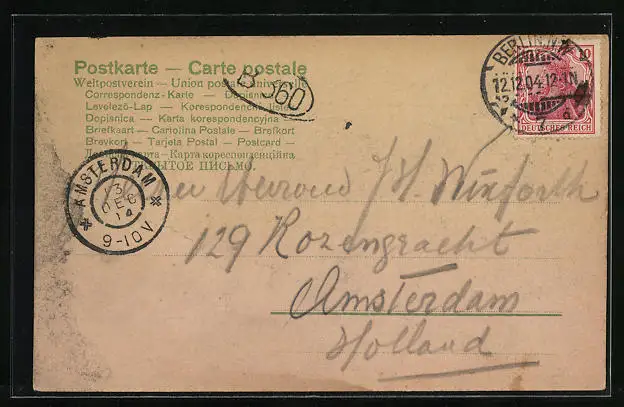 Postkarte — Carte postale
Weltpostverein — Union postale universelle
Correspondenz-Karte — Dopisnice
Levelező-Lap — Korespondencni listek
Dopisnica — Karta korespondencyjna
Briefkaart — Cartolina Postale — Brefkort
Brevkort — Tarjeta Postal — Postcard —
карта — Карта кореспонденційна
ОТКРЫТОЕ ПИСЬМО.
B 360
BERLIN N.W.
12.12.04.12-1N
7
10
DEUTSCHES REICH
AMSTERDAM
13
DEC
14
9-10V
J. H. Winforth
129 Rozengracht
Amsterdam
Holland